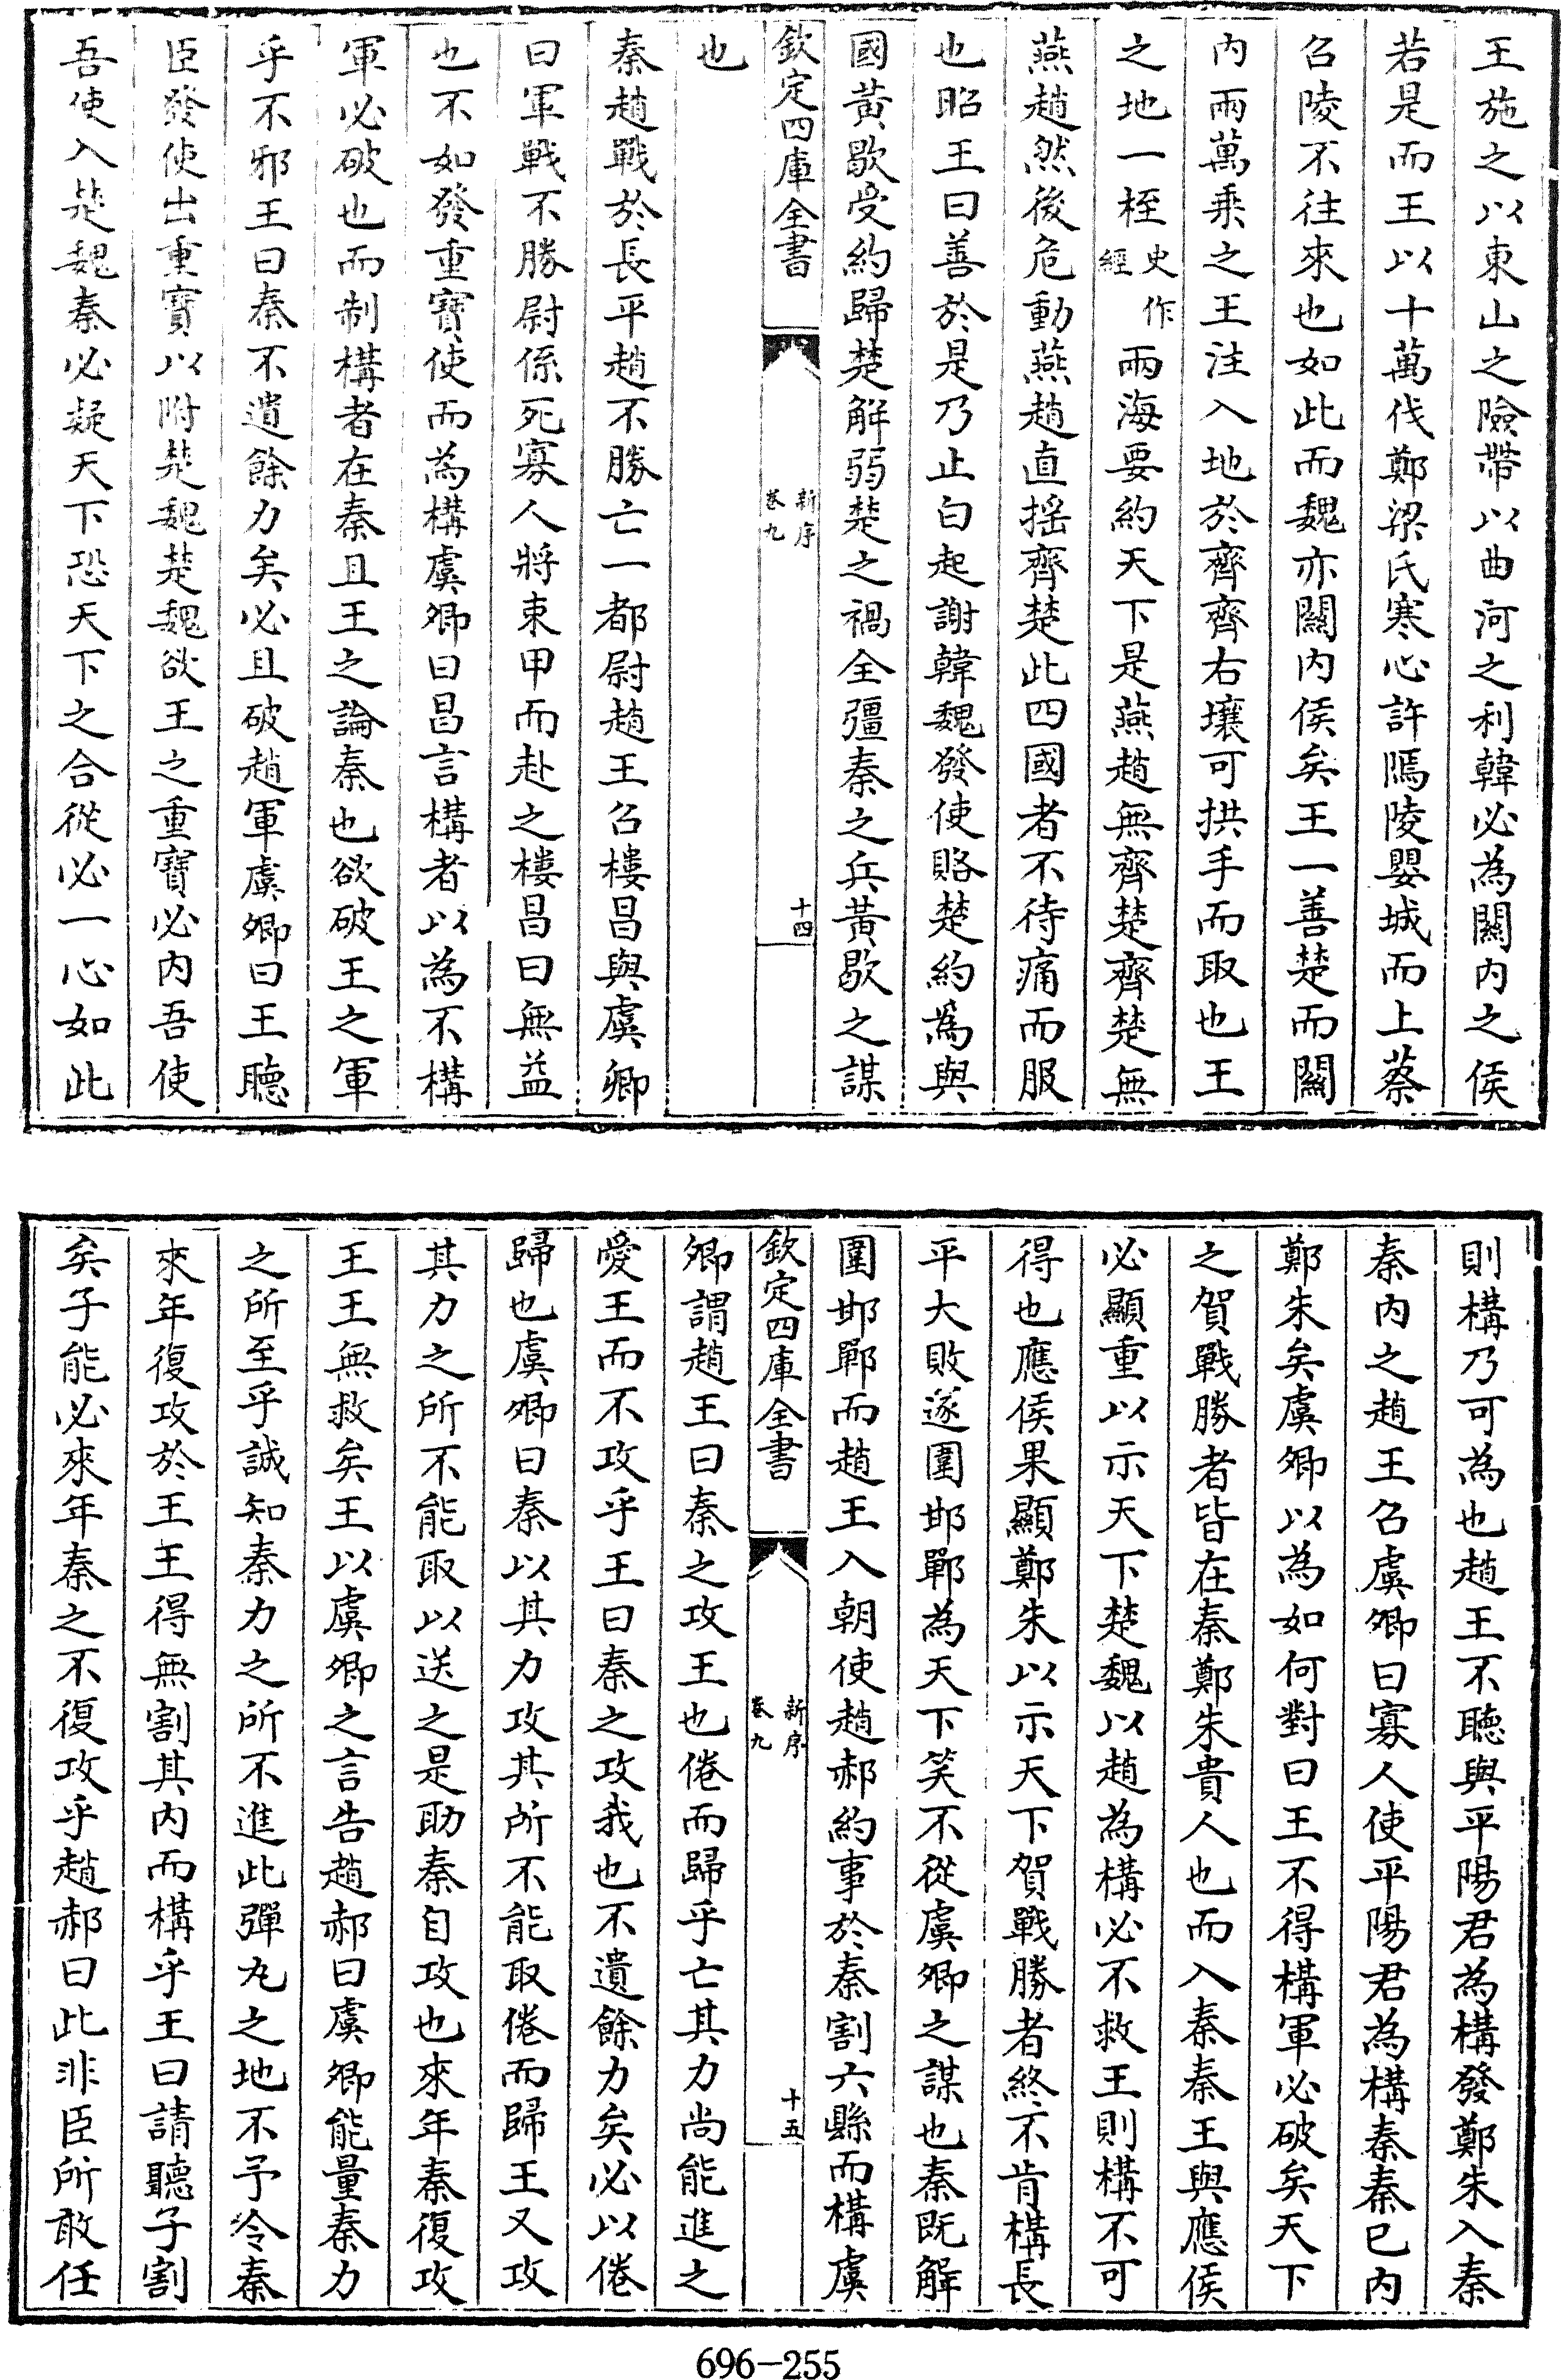 王施之以東山之險帶以曲河之利韓必為關内之侯
若是而王以十萬伐鄭梁氏寒心許鄢陵嬰城而上蔡
召陵不往來也如此而魏亦關内侯矣王一善楚而關
内兩萬乘之王注入地於齊齊右壤可拱手而取也王
之地一桎史作經兩海要約天下是燕趙無齊楚齊楚無
燕趙然後危動燕趙直揺齊楚此四國者不待痛而服
也昭王曰善於是乃止白起謝韓魏發使賂楚約爲與
國黄歇受約歸楚解弱楚之禍全彊秦之兵黄歇之謀
欽定四庫全書
新序
卷九
十四
也
秦趙戰於長平趙不勝亡一都尉趙王召樓昌與虞卿
曰軍戰不勝尉係死寡人將束甲而赴之樓昌曰無益
也不如發重寶使而為構虞卿曰昌言構者以為不構
軍必破也而制構者在秦且王之論秦也欲破王之軍
乎不邪王曰秦不遺餘力矣必且破趙軍虞卿曰王聽
臣發使出重寳以附楚魏楚魏欲王之重寶必内吾使
吾使入楚魏秦必疑天下恐天下之合從必一心如此
則構乃可為也趙王不聽與平陽君為構發鄭朱入秦
秦内之趙王召虞卿曰寡人使平陽君為構秦秦已内
鄭朱矣虞卿以為如何對曰王不得構軍必破矣天下
之賀戰勝者皆在秦鄭朱貴人也而入秦秦王與應侯
必顯重以示天下楚魏以趙為構必不救王則構不可
得也應侯果顯鄭朱以示天下賀戰勝者終不肯構長
平大敗遂圍邯鄲為天下笑不從虞卿之謀也秦既解
圍邯鄲而趙王入朝使趙郝約事於秦割六縣而構虞
欽定四庫全書
新序
卷九
十五
卿謂趙王曰秦之攻王也倦而歸乎亡其力尚能進之
愛王而不攻乎王曰秦之攻我也不遺餘力矣必以倦
歸也虞卿曰秦以其力攻其所不能取倦而歸王又攻
其力之所不能取以送之是助秦自攻也來年秦復攻
王王無救矣王以虞卿之言告趙郝曰虞卿能量秦力
之所至乎誠知秦力之所不進此彈丸之地不予令秦
來年復攻於王王得無割其内而構乎王曰請聽子割
矣子能必來年秦之不復攻乎趙郝曰此非臣所敢任
696-255